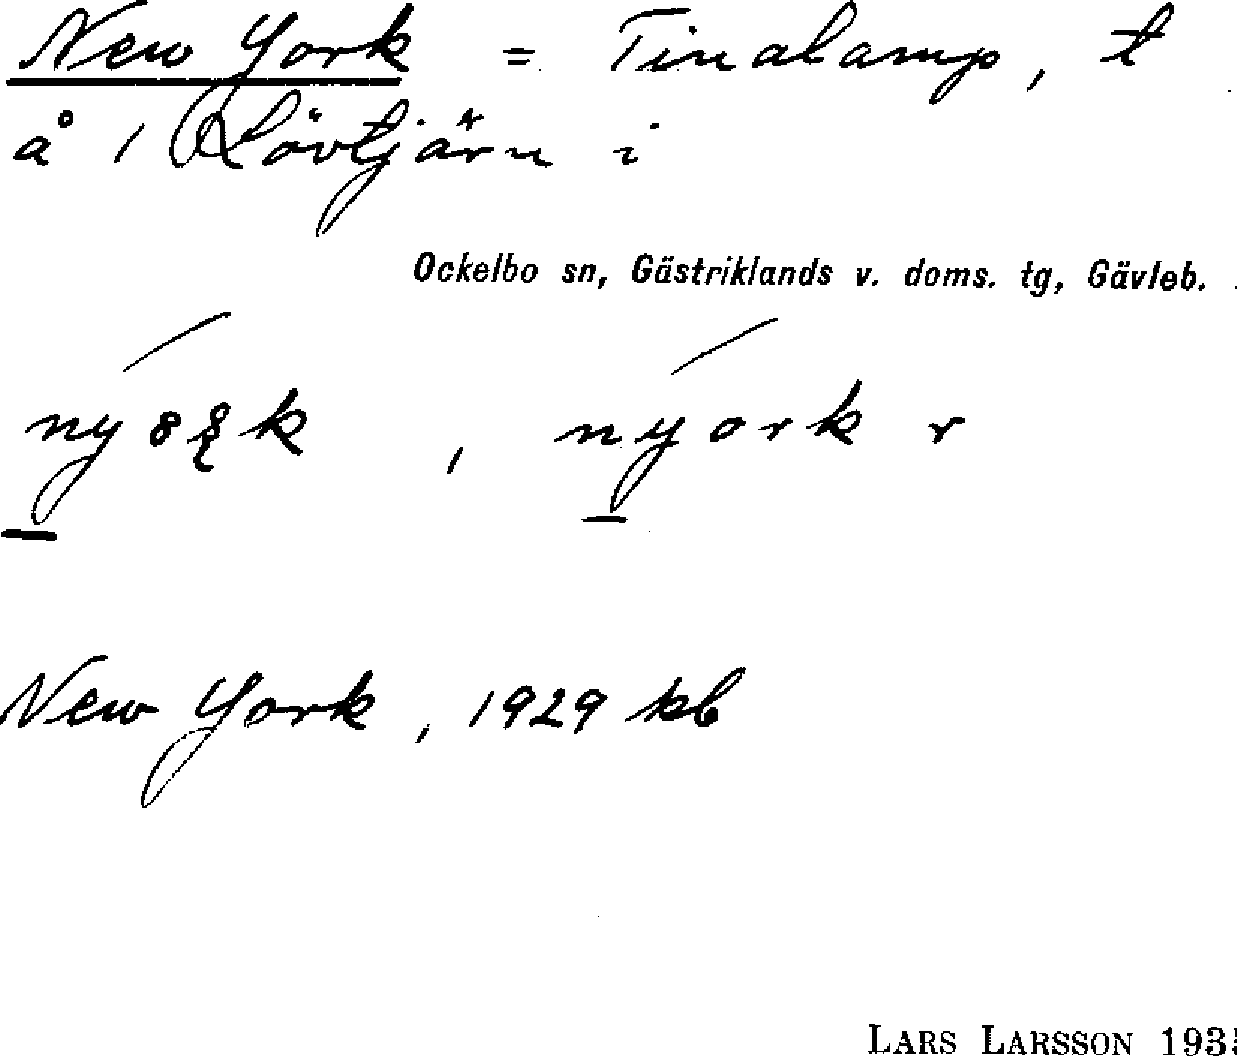 New York = Tinalamp, t
å 1 Lövtjärn i
Ockelbo sn, Gästriklands v. doms. tg, Gävleb.
, nyork r
New York, 1929 kb
LARS LARSSON 193